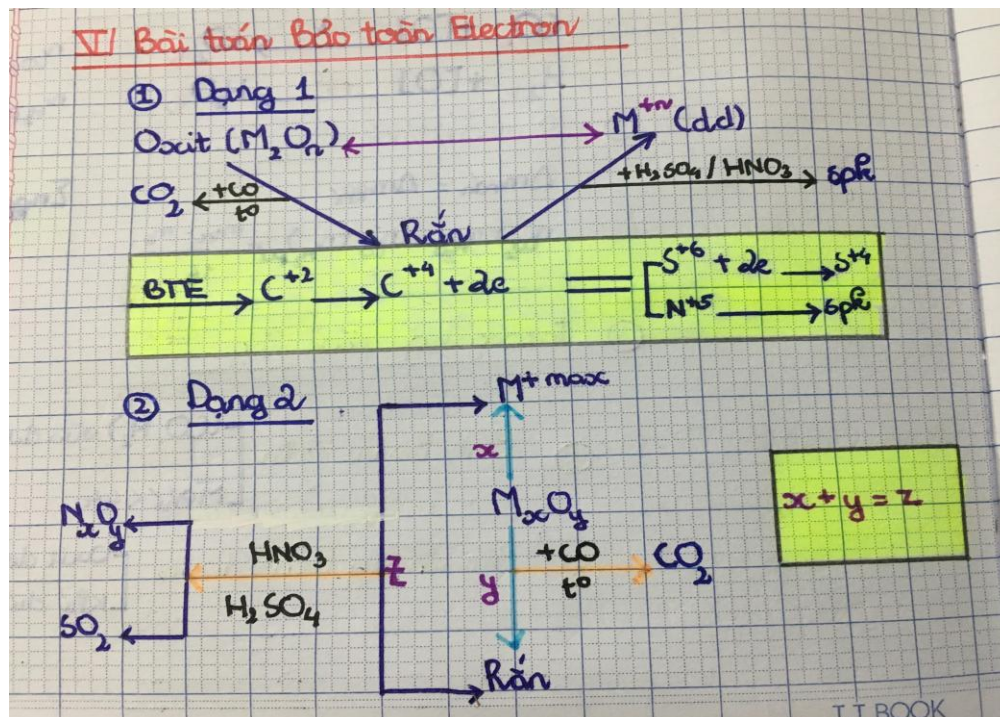 VI/ Bài toán Bảo toàn Electron
① Dạng 1
Oxit (M₂Oₙ) ⟷ M⁺ⁿ (dd)
CO₂ ← +CO t⁰
+H₂SO₄ / HNO₃ → spk
Rắn
BTE → C⁺² → C⁺⁴ + 2e = S⁺⁶ + 2e → S⁺⁴
N⁺⁵ → spk
② Dạng 2
M⁺ max
x
x + y = z
MₓOᵧ
NₓOᵧ
HNO₃
z
y
+CO t⁰ → CO₂
H₂SO₄
SO₂
Rắn
T.T BOOK